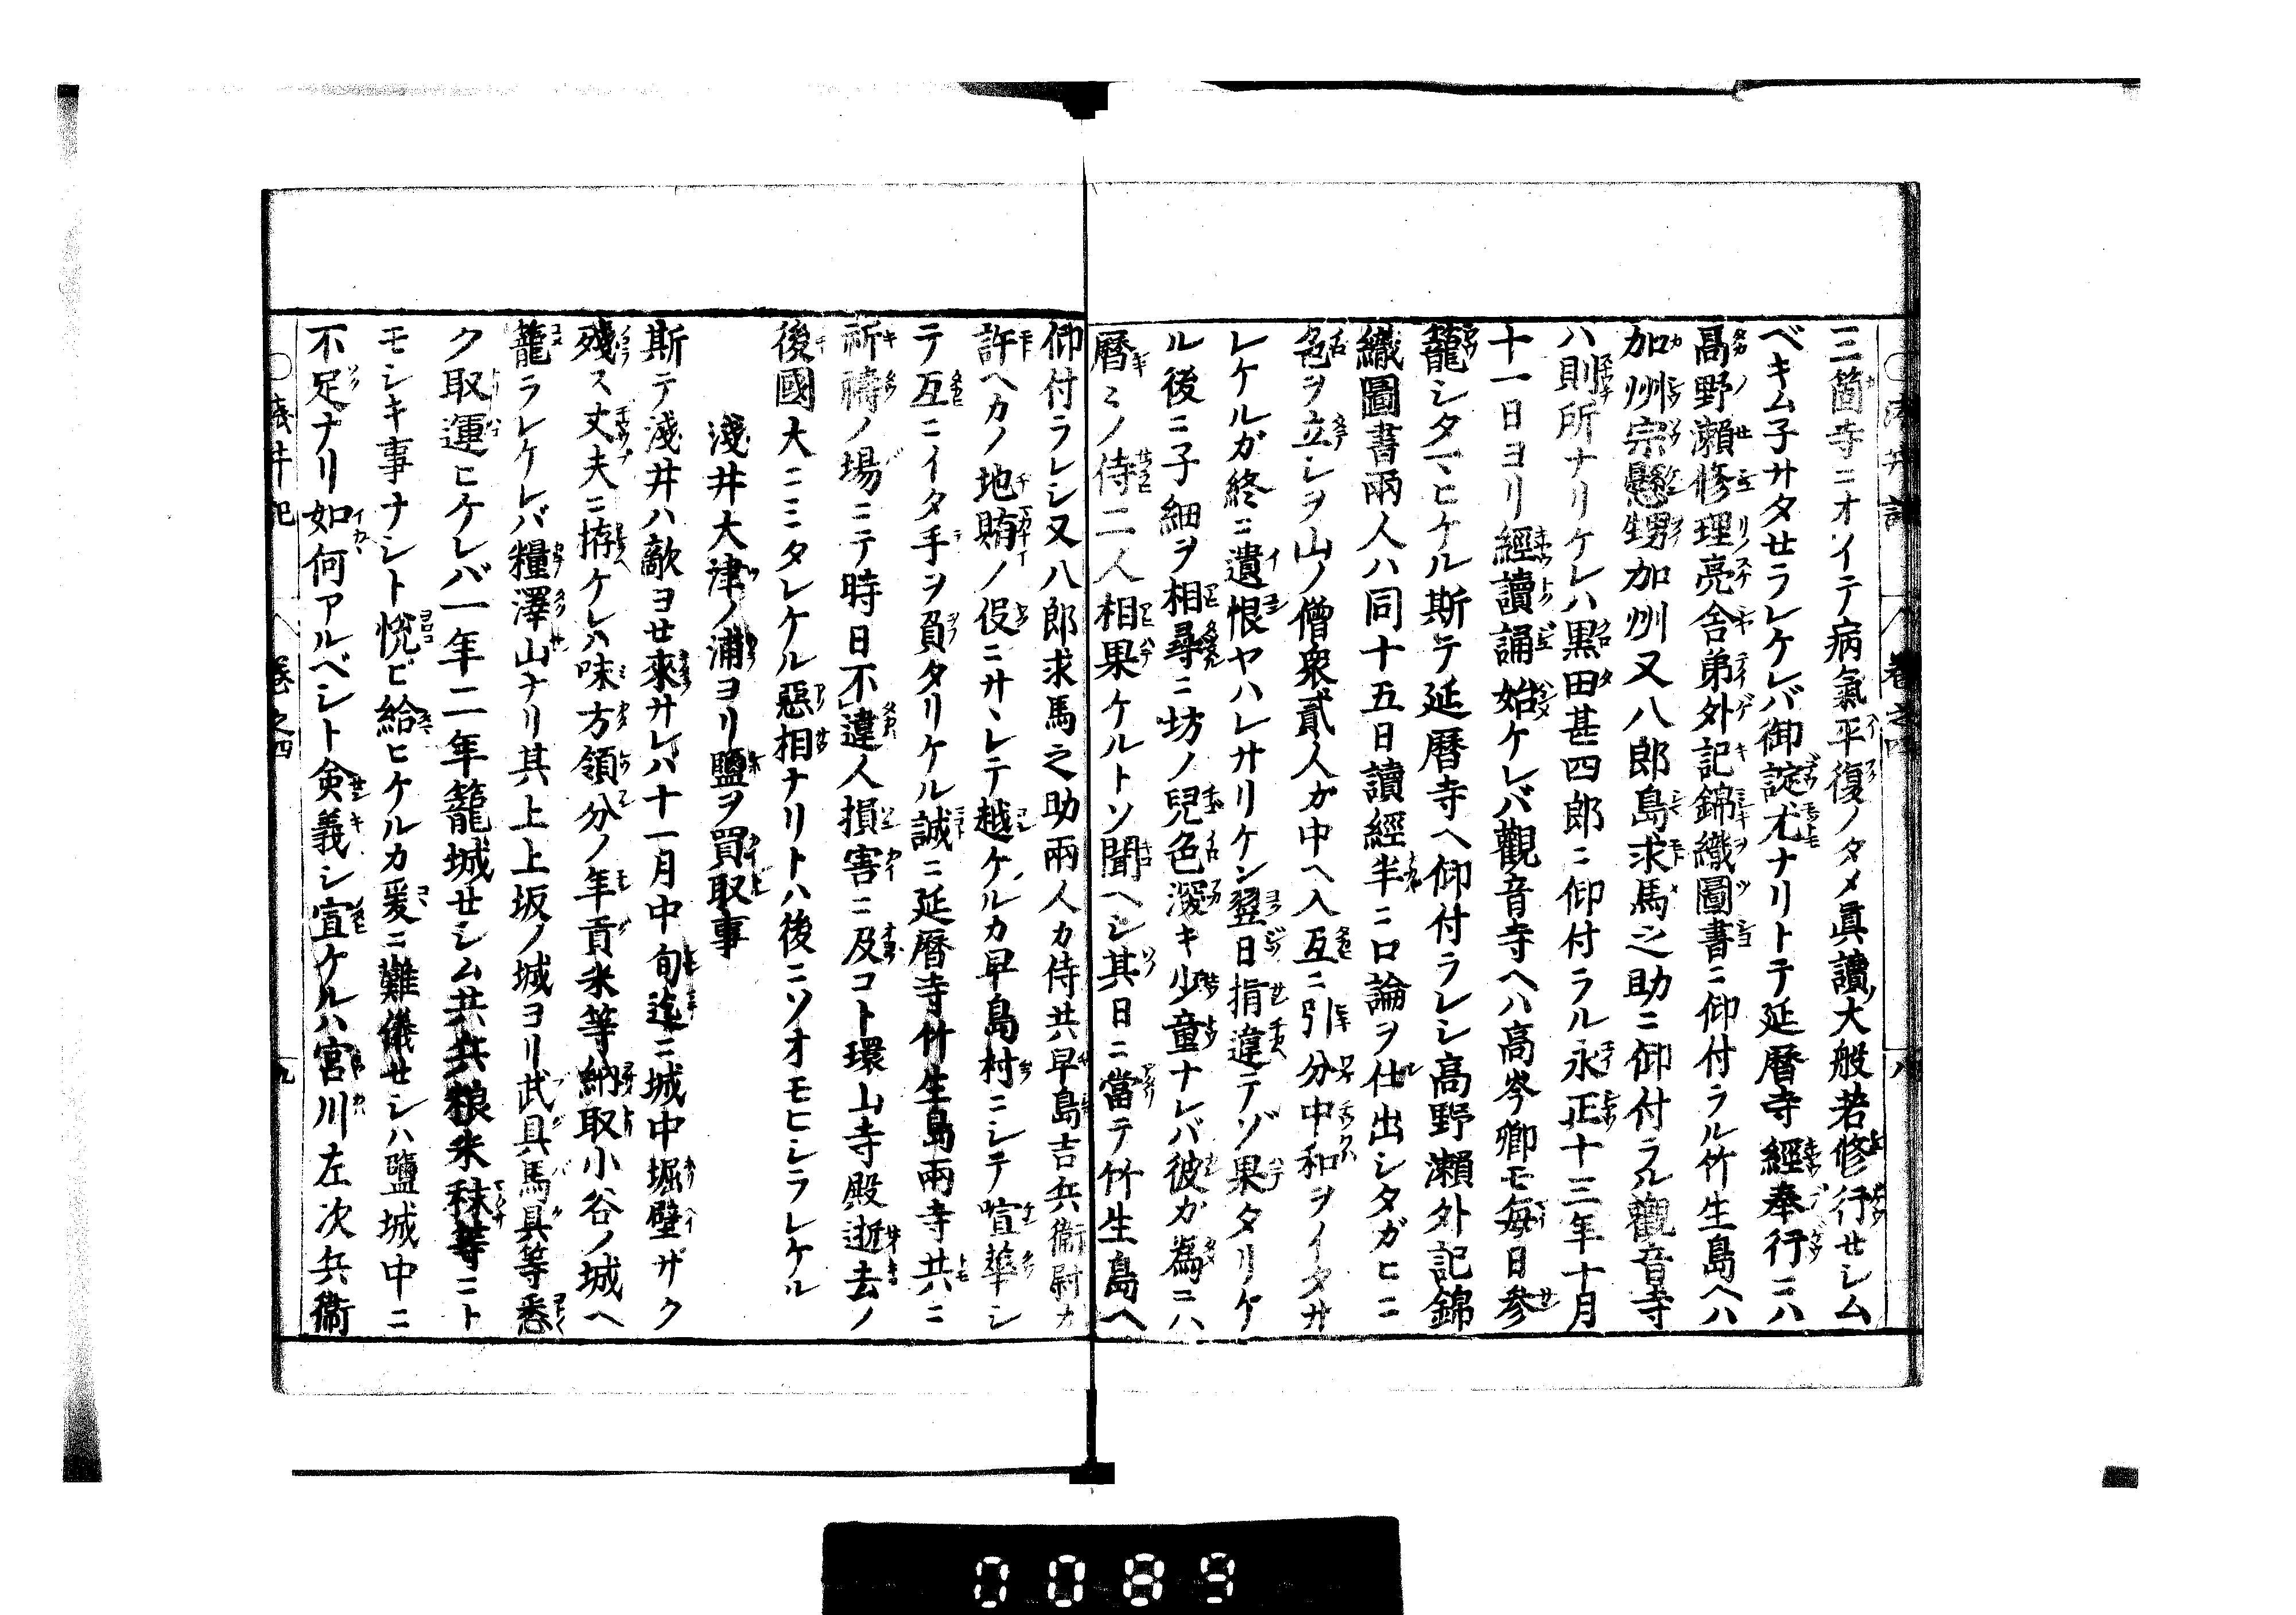 三箇寺ニオイテ病氣平復ノタメ眞讀ノ大般若修行セシム
ベキム子サタせラレケレバ御諚尤ナリトテ延暦寺經奉行ニハ
髙野瀬修理亮舎弟外記錦織圖書ニ仰付ラル竹生島ヘハ
加州宗懸甥加州又八郎島求馬之助ニ仰付ラル觀音寺
ハ則所ナリケレハ黒田甚四郎ニ仰付ラル永正十三年十月
十一日ヨリ經讀誦始ケレバ觀音寺ヘハ高岑卿モ毎日参
籠シタマヒケル斯テ延暦寺ヘ仰付ラレシ高野瀬外記錦
織圖書兩人ハ同十五日讀經半ニ口論ヲ仕出シタガヒニ
色ヲ立シヲ山ノ僧衆貳人ガ中ヘ入互ニ引分中和ヲイタサ
レケルガ終ニ遺恨ヤハレサリケン翌日指違テゾ果タリケ
ル後ニ子細ヲ相尋ニ坊ノ兒色深キ少童ナレバ彼カ為ニハ
暦ミノ侍二人相果ケルトソ聞ヘシ其日ニ當テ竹生島ヘ
仰付ラレシ又八郎求馬之助兩人カ侍共早島吉兵衞尉カ
許ヘカノ地賄ノ役ニサヽレテ越ケルカ早島村ニシテ喧華シ
テ互ニイタ手ヲ負タリケル誠ニ延暦寺竹生島兩寺共ニ
祈禱ノ場ニテ時日不違人損害ニ及コト環山寺殿逝去ノ
後國大ニミタレケル惡相ナリトハ後ニソオモヒシラレケル
淺井大津ノ浦ヨリ鹽ヲ買取事
斯テ淺井ハ敵ヨせ來サレハ十一月中旬迄ニ城中堀壁サク
殘ス丈夫ニ拵ケレハ味方領分ノ年貢米等納取小谷ノ城ヘ
籠ラレケレバ糧澤山ナリ其上上坂ノ城ヨリ武具馬具等悉
ク取運ヒケレバ一年二年籠城せシム共兵粮米秣等ニト
モシキ事ナシト悦ビ給ヒケルカ爰ニ難儀せシハ鹽城中ニ
不足ナリ如何アルベシト僉義シ宣ケルハ宮川左次兵衞
淺井記　卷之四　九
0089